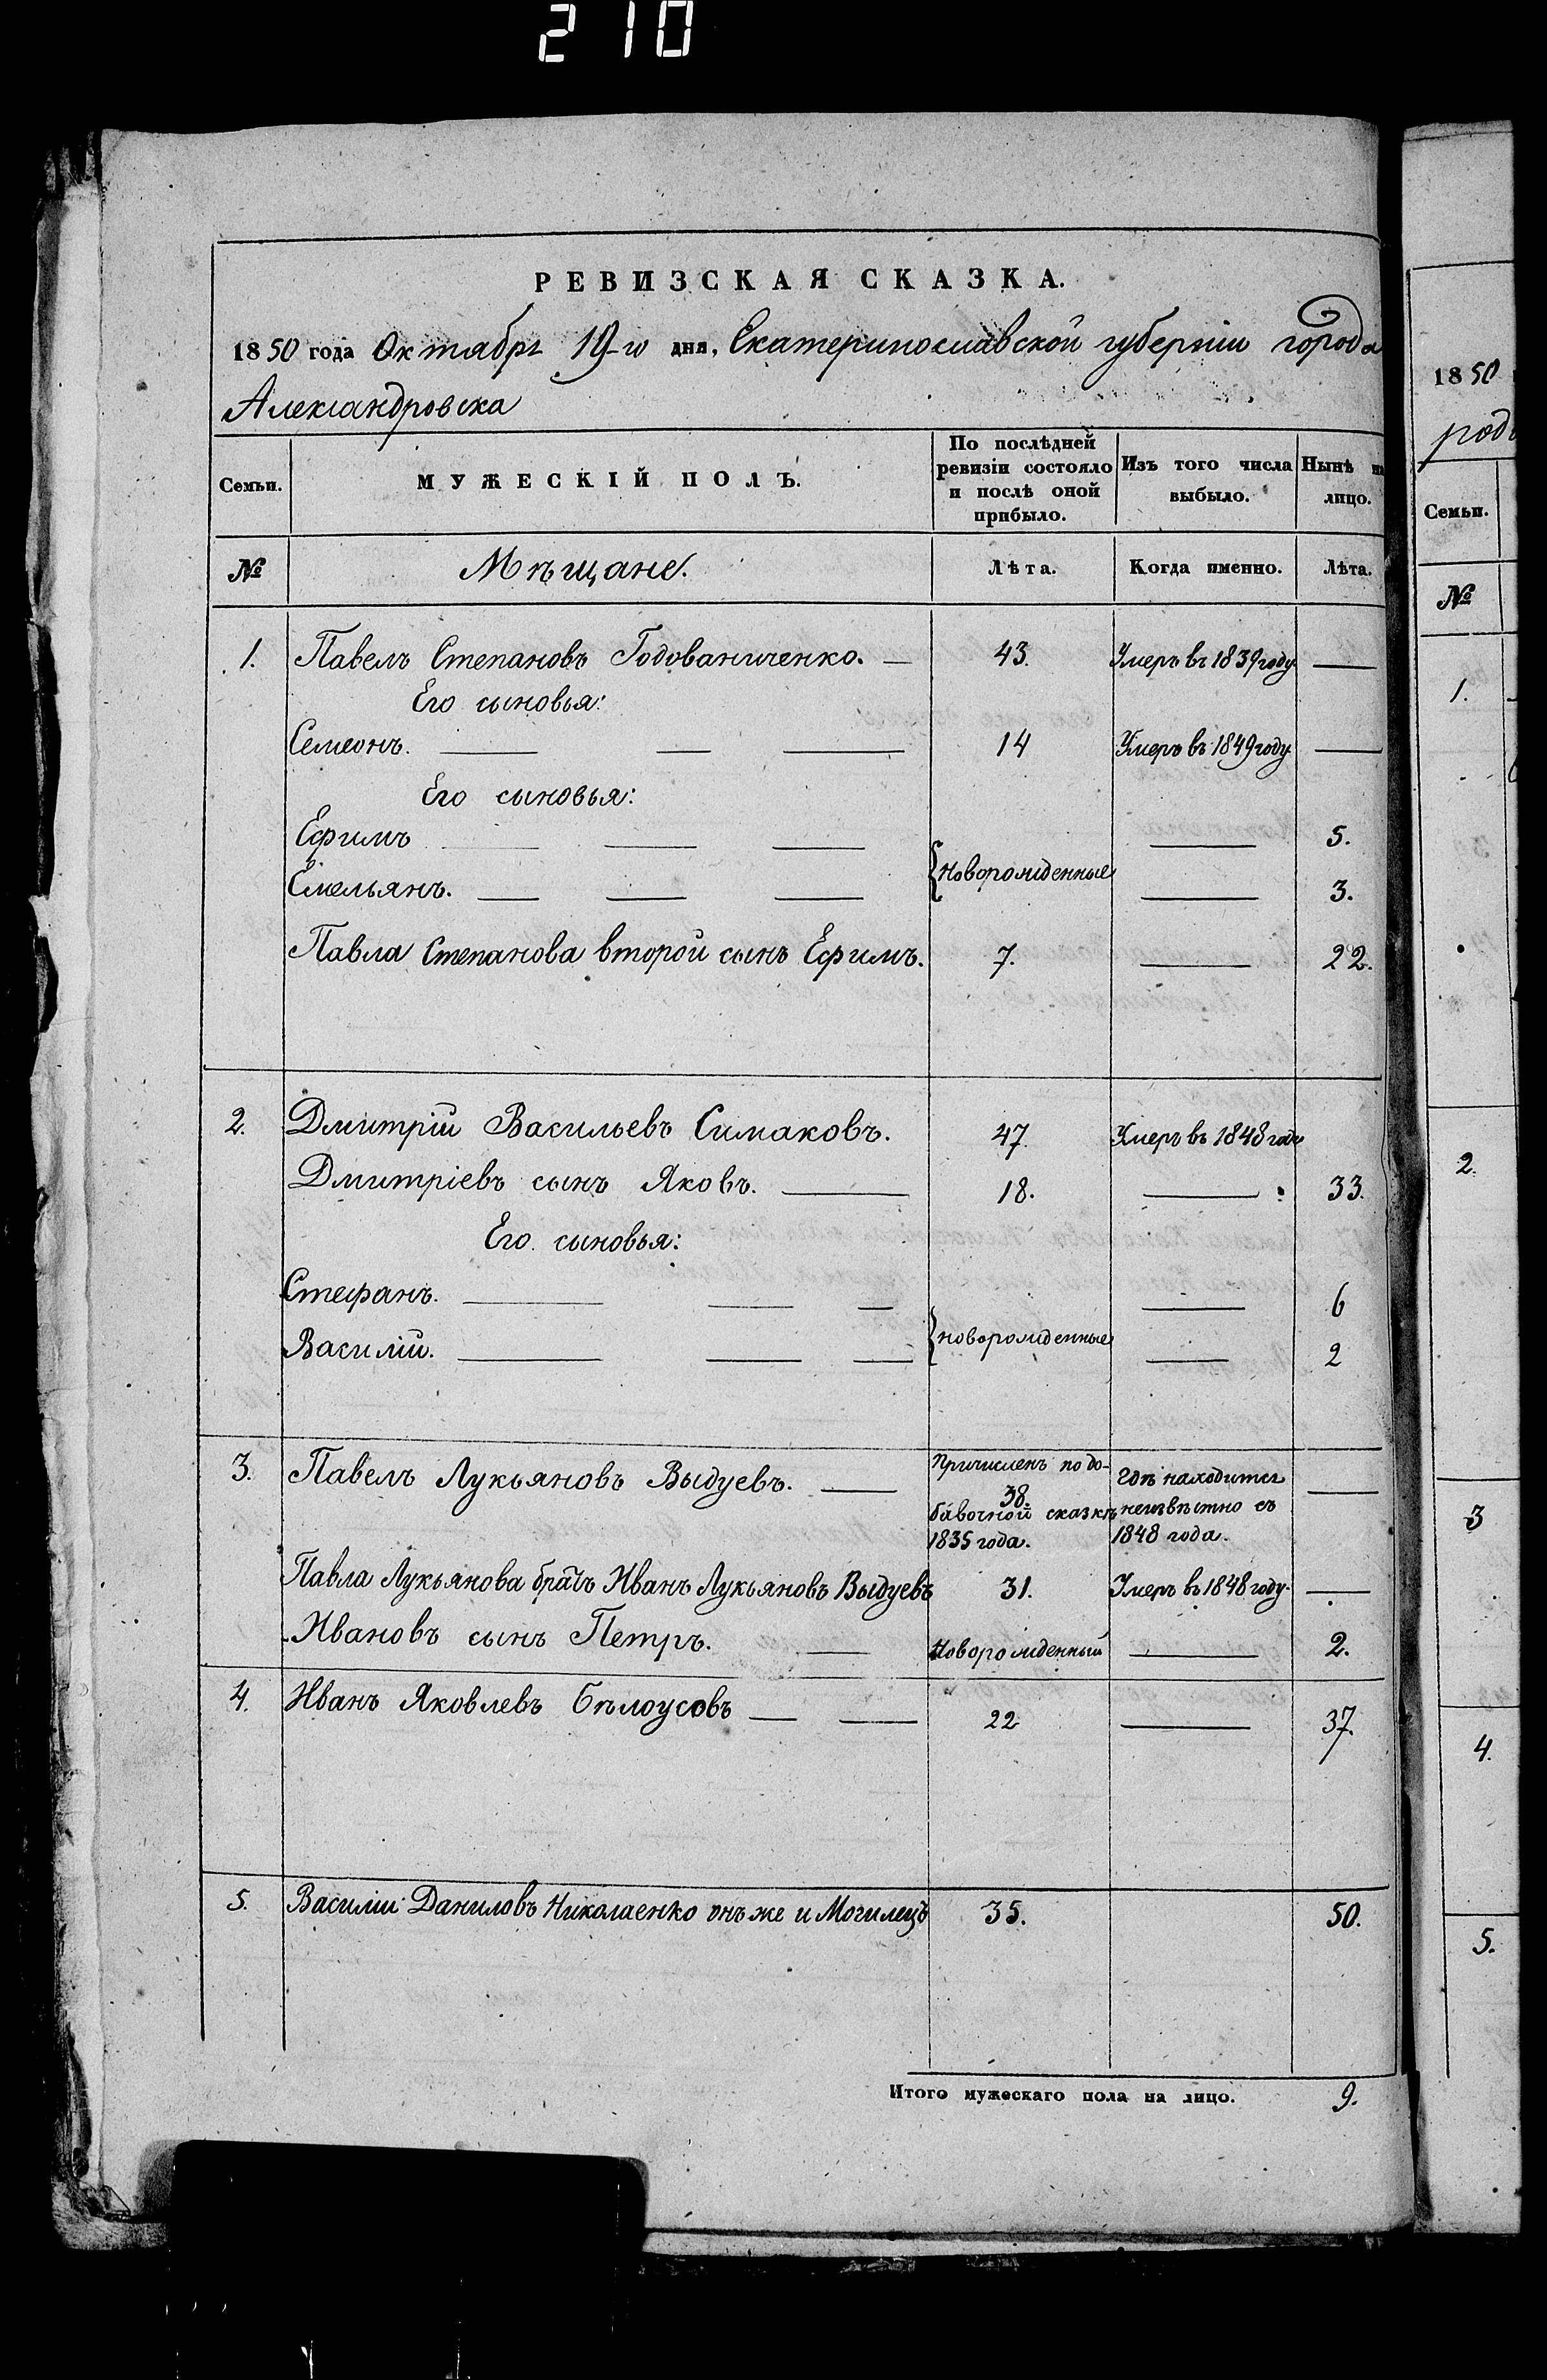 210
РЕВИЗСКАЯ СКАЗКА.
1850 года Октября 19-го дня, Екатеринославской губерніи города
Александровска
Семьи. МУЖЕСКІЙ ПОЛЪ. По послѣдней ревизіи состояло и послѣ оной прибыло. Изъ того числа выбыло. Нынѣ на лицо.
№ Мѣщане. Лѣта. Когда именно. Лѣта.
1. Павелъ Степановъ Годованиченко. — 43. Умеръ въ 1839 году —
Его сыновья:
Семеонъ. — — — 14 Умеръ въ 1849 году —
Его сыновья:
Ефимъ — — — — 5.
{новорожденные
Емельянъ. — — — — 3.
Павла Степанова второй сынъ Ефимъ. 7. — 22.
2. Дмитрій Васильевъ Симаковъ. 47. Умеръ въ 1848 году
Дмитріевъ сынъ Яковъ. — 18. — 33.
Его сыновья:
Стефанъ. — — — — 6
{новорожденные
Василій. — — — — 2
3. Павелъ Лукьяновъ Выдуевъ. — Причисленъ по до- Гдѣ находится —
38.
бавочной сказкѣ неизвѣстно съ
1835 года. 1848 года.
Павла Лукьянова братъ Иванъ Лукьяновъ Выдуевъ 31. Умеръ въ 1848 году. —
Ивановъ сынъ Петръ. — Новорожденный — 2.
4. Иванъ Яковлевъ Бѣлоусовъ — — 22 — 37.
5. Василій Даниловъ Николаенко онъ же и Могилецъ 35. 50.
Итого мужескаго пола на лицо. 9.
1850
родъ
Семьи.
№
1.
2.
3
4.
5.